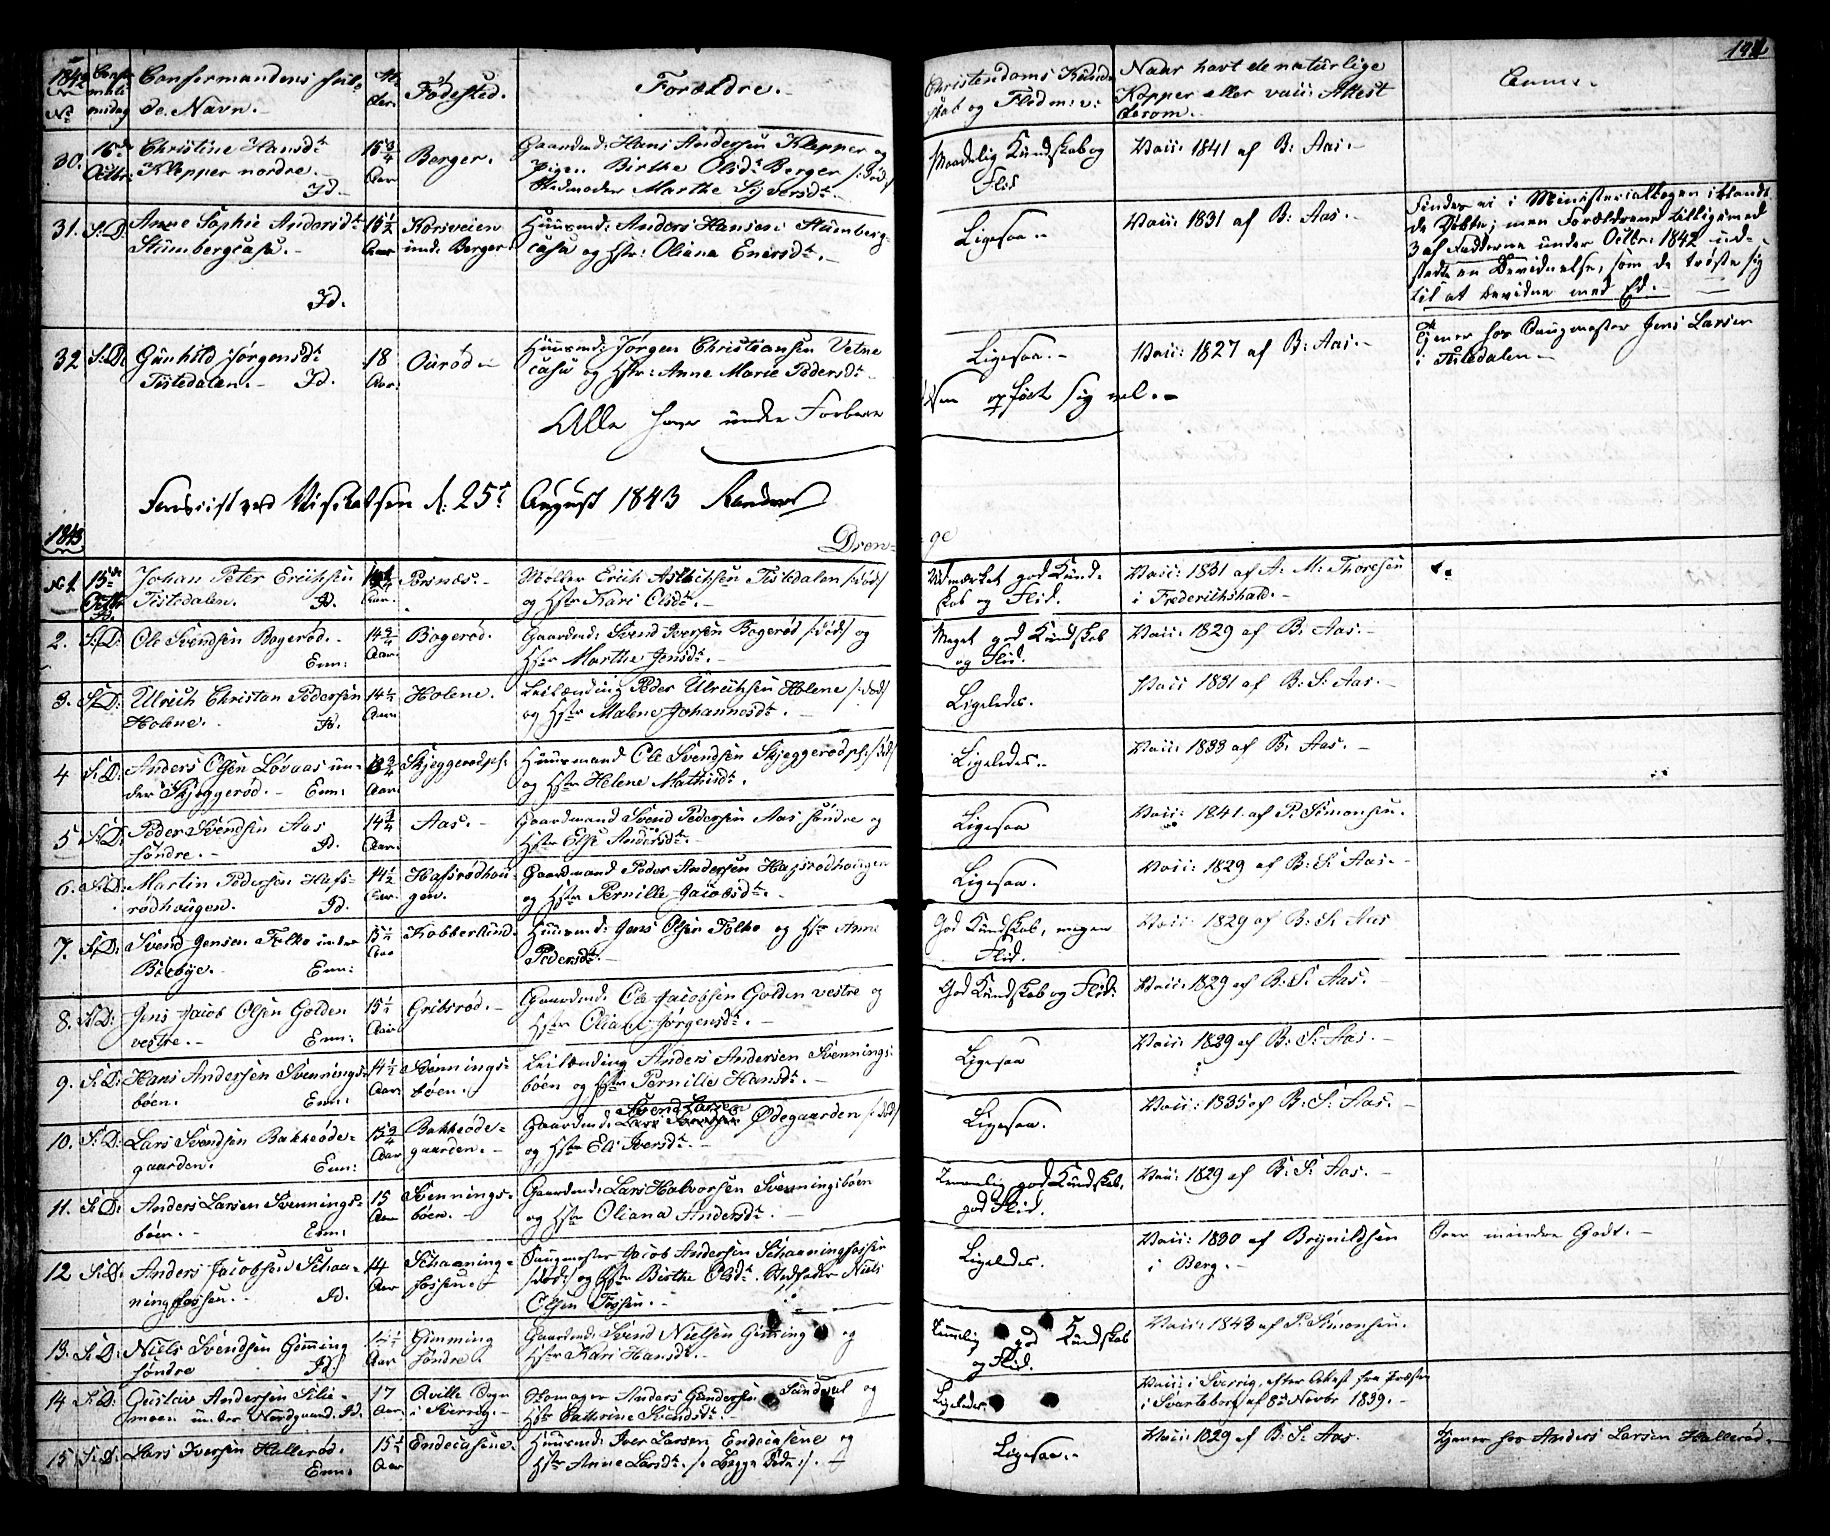 191
1842
No
Confirmandens fulde Navn.
Alder.
Fødested.
Forældre.
Christendoms Kundskab og Flid m: v:
Naar havt de naturlige Kopper eller vacc: Attest derom.
Anm:
30. 16de Octbr: Christine Hansdtr Klepper nordre. Id. 15 3/4 Aar Berger. Gaardmd: Hans Andersen Klepper og Pigen Birthe Olsdtr Berger /:død:/ Stedmoder Marthe Syversdtr. Maadelig Kundskab og Flid Vacc: 1841 af B: Aas.
31. S: D: Anne Sophie Andersdtr Stumbergcasa. Id. 15 1/2 Aar Korsveien und: Berger. Huusmd: Anders Hansen Stumbergcasa og Hstr: Oliana Enersdtr. Ligesaa. Vacc: 1831 af B: Aas. Findes ei i Ministerialbogen iblandt de Døbte; men Forældrene tilligemed 3 af Fadderne under Octbr: 1842 udstedt en Bevidnelse, som de trøste sig til at bevidne med Ed.
32 S: D: Gunhild Jørgensdtr Tistedalen. Id. 18 Aar. Ourød Huusmd: Jørgen Christiansen Vetnecasa og Hstr: Anne Marie Pedersdtr. Ligesaa. Vacc: 1827 af B: Aas. Tjener hos Saugmester Jens Larsen i Tistedalen
Alle have under Forberedelsen opført sig vel.
d: 25t August 1843
1843
Drenge
No 1. 15de Octbr Johan Peter Erichsen Tistedalen. Id. Aar. Porsnæs. Møller Erich Tistedalen /:død:/ og Hstr Kari Olsdtr. Udmærket god Kundskab og Flid. Vacc: 1831 af A. M. Thoresen i Frederikshald.
2. S: D: Ole Svendsen Bogerød. Enn: 14 3/4 Aar. Bogerød. Gaardmd: Svend Iversen Bogerød /:død:/ og Hstr Marthe Jensdtr. Meget god Kundskab og Flid. Vacc: 1829 af B: Aas.
3. S: D: Ulrich Christian Pedersen Holene. Id. 14 1/2 Aar Holene. Leilænding Peder Ulrichsen Holene /:død:/ og Hstr Malene Johannesdtr. Ligeledes. Vacc 1831 af B: S: Aas.
4 S: D: Anders Olsen Løvaas under Skjeggerød. Enn: Aar. Skjeggerødpl: Huusmand Ole Svendsen Skjeggerødpl: /:død:/ og Hstr Helene Mathisdtr. Ligeledes. Vacc: 1833 af B: Aas.
5 S: D: Peder Svendsen Aas søndre. Id. 14 3/4 Aar. Aas. Gaardmand Svend Pedersen Aas søndre og Hstr Else Andersdtr. Ligesaa Vacc: 1841. af P. Simonsen.
6. S: D: Martin Pedersen Hafsrødhougen. Id. 14 1/2 Aar. Hafsrødhougen. Gaardmand Peder Andersen Hafsrødhougen og Hstr Pernille Jacobsdtr. Ligesaa. Vacc: 1829 af B: S: Aas.
7. S: D: Svend Jensen Folke under Bierbye. Enn: 15 1/2 Aar Kobberlund. Huusmd: Jens Olsen Folke og Hstr Anne Pedersdtr. God Kundskab, megen Flid. Vacc: 1829 af B: S: Aas
8. S: D: Jens Jacob Olsen Golden vestre. Enn: 15 1/2 Aar Gribsrød. Gaardmd: Ole Jacobsen Golden vestre og Hstr Oliane Jørgensdtr. God Kundskab og Flid: Vacc: 1829 af B: S: Aas.
9. S: D: Hans Andersen Svenningsbøen. Enn: 14 1/2 Aar Svenningsbøen. Leilænding Anders Andersen Svenningsbøen og Hstr Pernille Hansdtr. Ligesaa Vacc: 1829 af B: S: Aas.
10. S: D: Lars Svendsen Bakkeødegaarden. Enn: 15 3/4 Aar Bakkeødegaarden. Gaardmd: Svend Larsen Ødegaarden /:død:/ og Hstr Eli Iversdtr. Ligesaa. Vacc: 1835 af B: S: Aas.
11. S: D: Anders Larsen Svenningsbøen. Enn: 15 Aar Svenningsbøen. Gaardmd: Lars Halvorsen Svenningsbøen og Hstr Oliana Andersdtr. Temmelig god Kundskab, god Flid. Vacc: 1829 af B: S: Aas.
12 S: D: Anders Jacobsen Schaaningfossen. Id. 14 Aar Schaaningfossen. Saugmester Jacob Andersen Schaaningfossen /:død:/ og Hstr Birthe Olsdtr. Stedfader Niels Olsen Fossen. Ligeledes. Vacc: 1830 af Brynildsen i Berg. Seer mindre Godt.
13. S: D: Niels Svendsen Gimming søndre Id. Aar Gimming søndre. Gaardmd: Svend Nielsen Gimming og Hstr Kari Hansdtr. Temmelig god Kundskab og Flid. Vacc: 1843 af P. Simonsen.
14 S: D: Gustav Andersen under Nordgaard. Id. 17 Aar. Qville Sogn i Sverrig. Skomager Anders Gundersen Sundsval og Hstr Cathrine Svendsdtr. Ligeledes. Vacc: i Sverrig, efter Attest fra Præsten i Svarteborg af 8de Novbr 1839.
15 S: D: Lars Iversen Hallerød. Enn: 15 1/2 Aar Endecasene. Huusmd: Iver Larsen Endecasene og Hstr Anne Larsdtr. /: Begge døde :/. Ligesaa. Vacc: 1829 af B: S: Aas. Tjener hos Anders Larsen Hallerød.